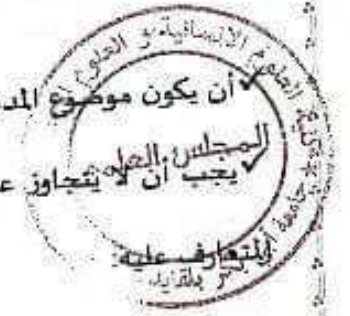 كلية العلوم الإنسانية و العلوم
✓ أن يكون موضوع المد
المجلس العلمي
✓ يجب أن لا يتجاوز ع
المتعارف عليه:
جامعة أبي بكر بلقايد